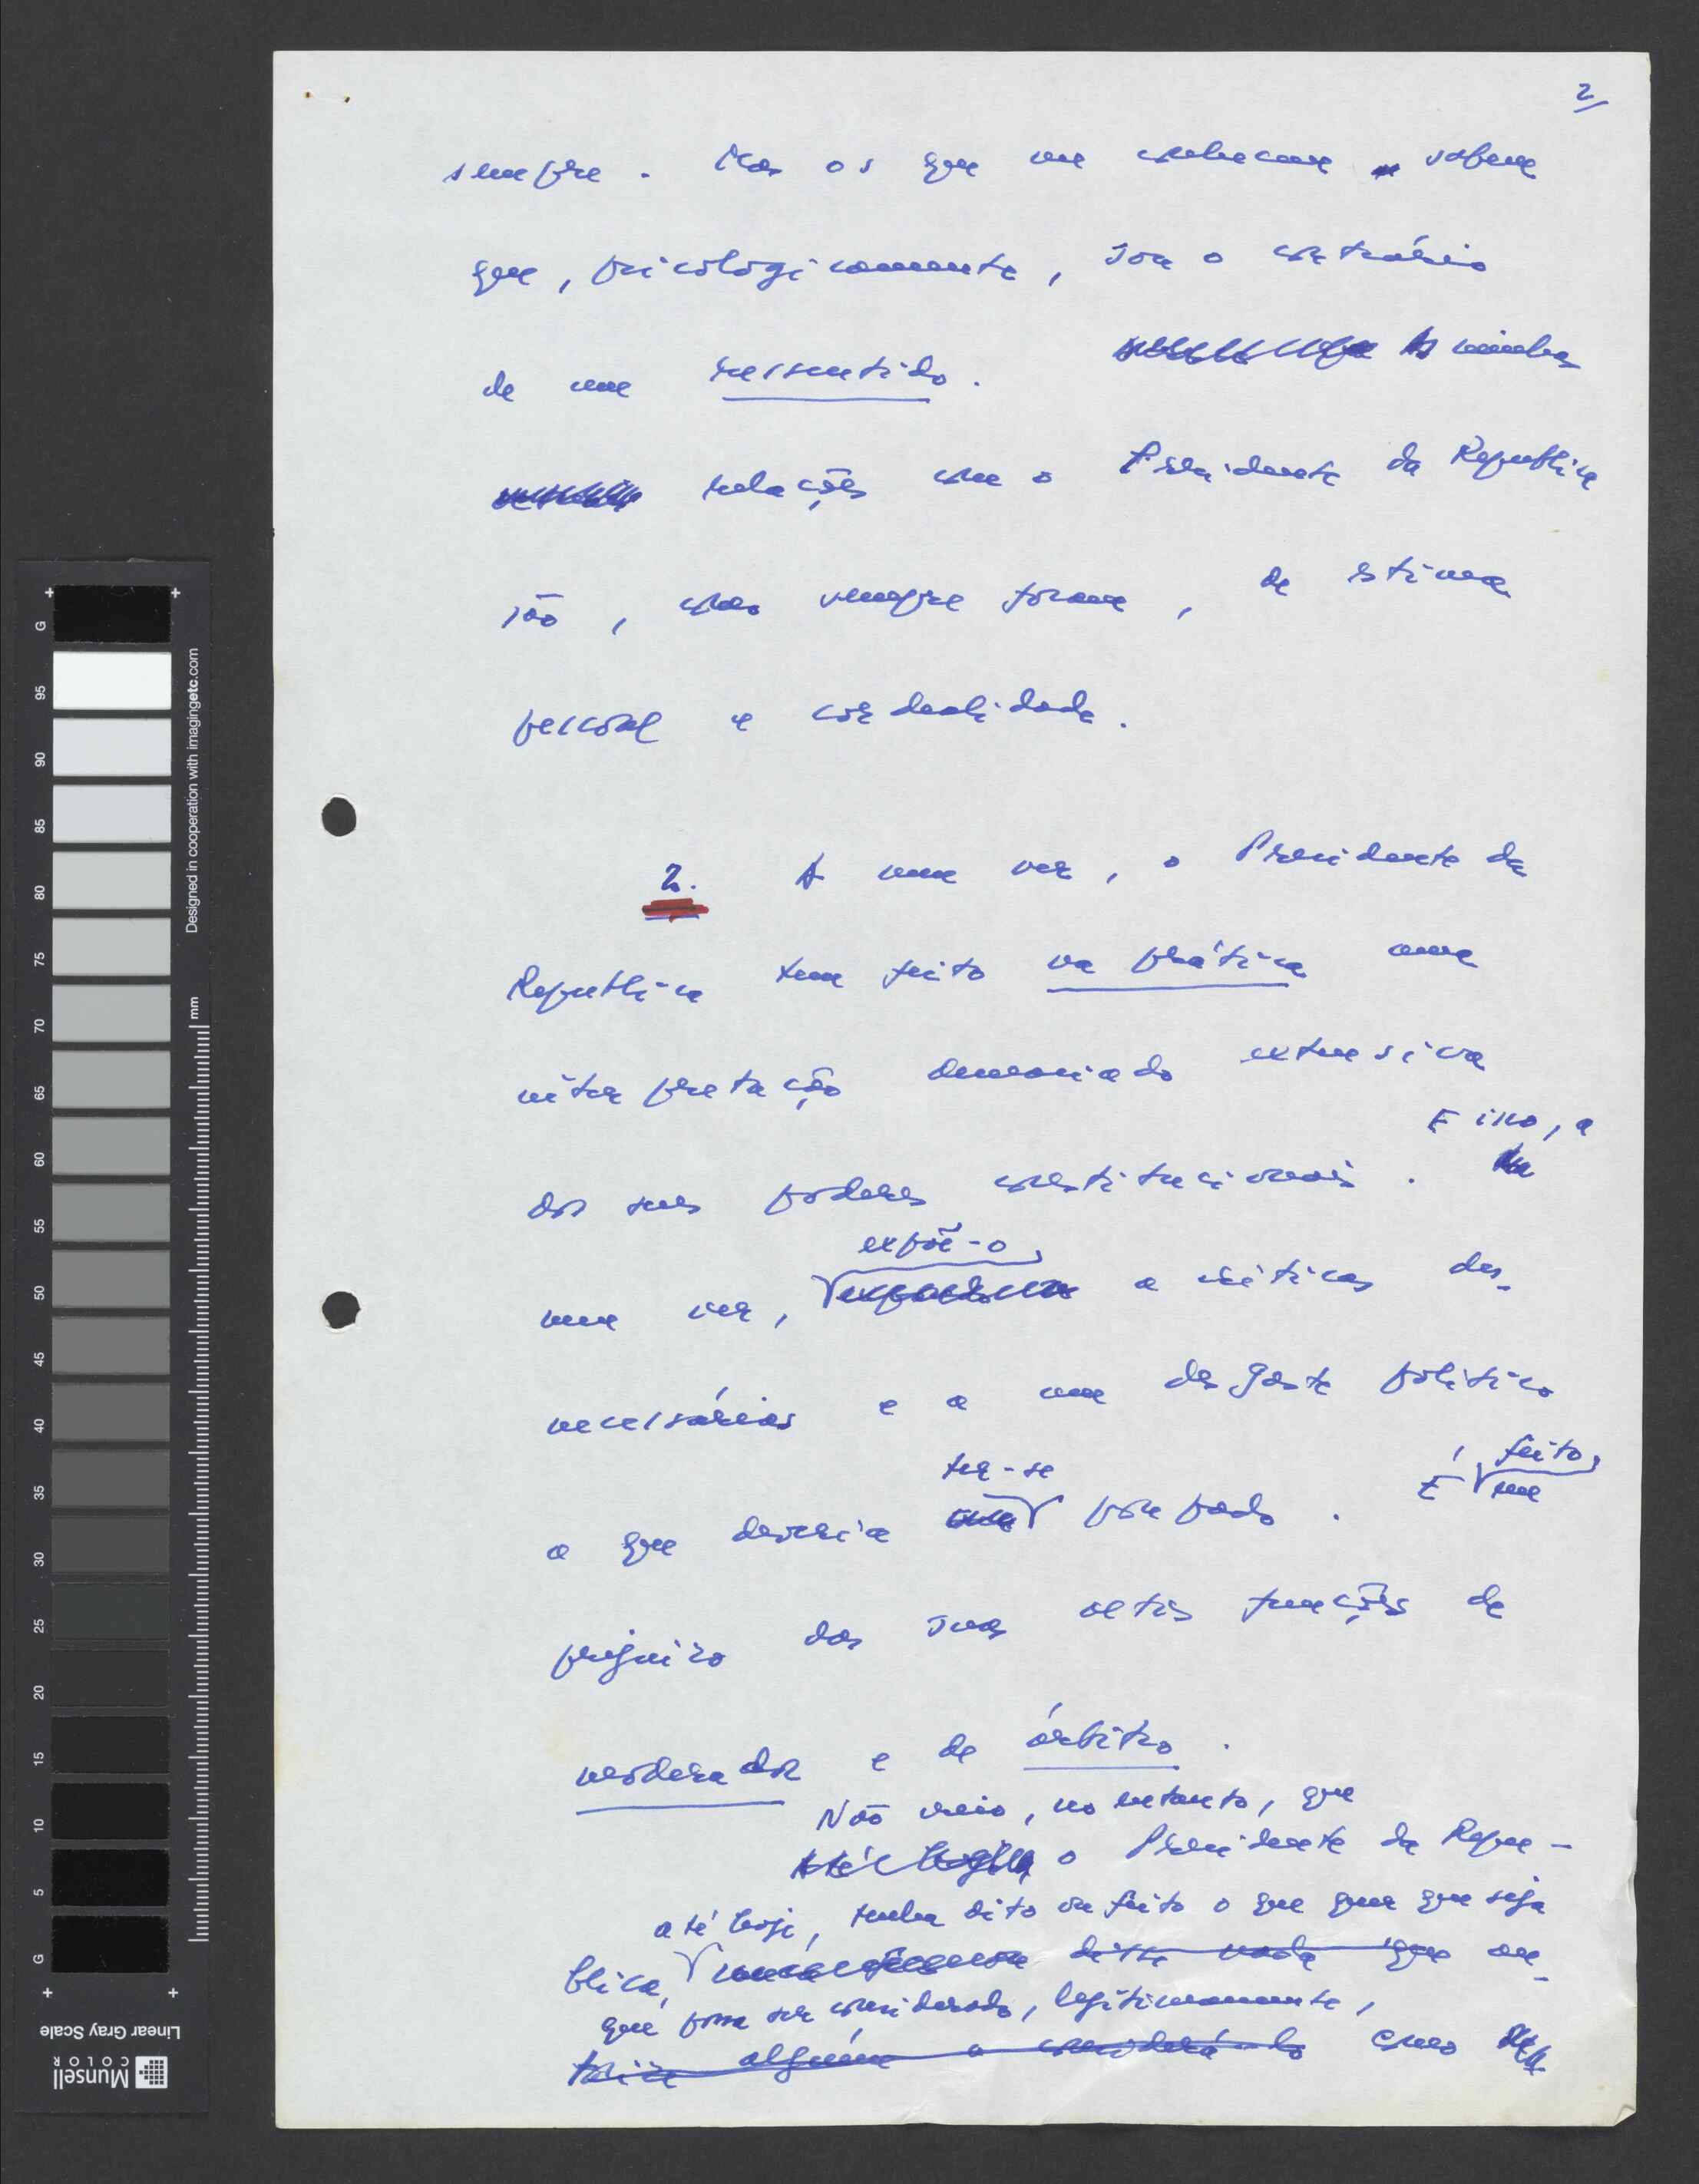 2
sempre. Mas os que me conhecem sabem
que, psicologicamente, sou o contrário
de um ressentido. As minhas
relações com o Presidente da Republica
são, como sempre foram, de estima
pessoal e cordealidade.
2. A meu ver, o Presidente da
Republica tem feito na prática uma
interpretação demasiado extensiva
dos seus poderes constitucionais. E isso, a
meu ver, expõe-o a criticas des-
necessárias e a um desgaste politico
a que deveria ter-se poupado. É feito, em
prejuizo das suas altas funções de
moderador e de árbitro.
Não creio, no entanto, que
o Presidente da Repu-
blica, até hoje, tenha dito ou feito o que quer que seja
disse nada que au-
que possa ser considerado, legitimamente,
torize alguém a considerá-lo como
Designed in cooperation with imagingetc.com
mm
G 95 90 85 80 75 70 65 60 55 50 45 40 35 30 25 20 15 10 5 G
Linear Gray Scale
Munsell
COLOR